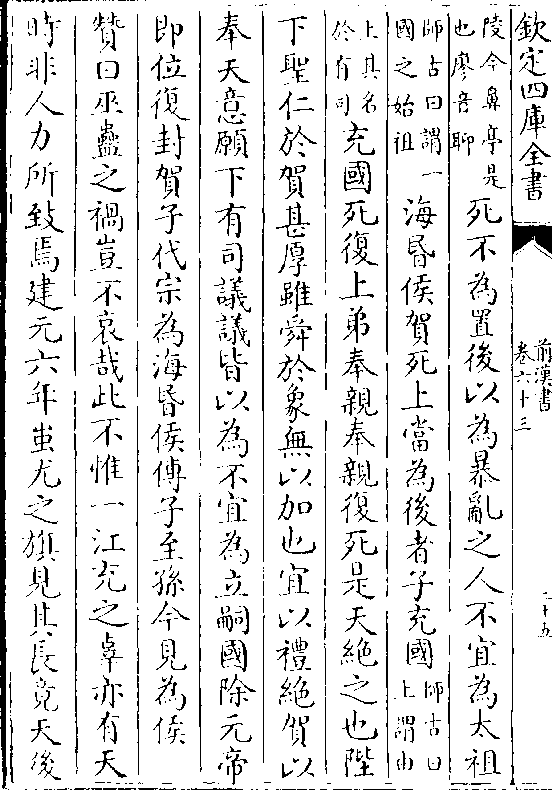 欽定四庫全書
前漢書
卷六十三
二十五
陵今鼻亭是
也廖音聊
死不為置後以為暴亂之人不宜為太祖
師古曰謂一
國之始祖
海昬侯賀死上當為後者子充國
師古曰
上謂由
上其名
於有司
充國死復上弟奉親奉親復死是天絶之也陛
下聖仁於賀甚厚雖舜於象無以加也宜以禮絶賀以
奉天意願下有司議議皆以為不宜為立嗣國除元帝
即位復封賀子代宗為海昬侯傳子至孫今見為侯
贊曰巫蠱之禍豈不哀哉此不惟一江充之辜亦有天
時非人力所致焉建元六年蚩尤之旗見其長竟天後